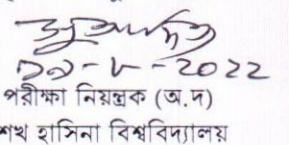 ২৯-৮-2022
পরীক্ষা নিয়ন্ত্রক (অ.দ)
শেখ হাসিনা বিশ্ববিদ্যালয়